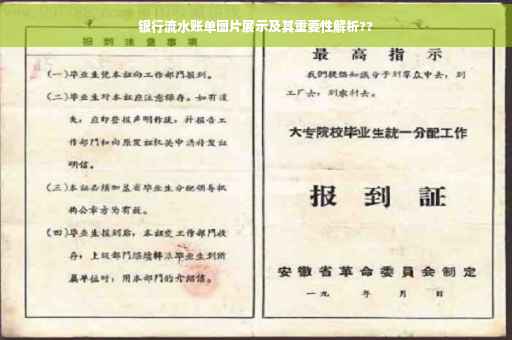 银行流水账单图片展示及其重要性解析??
报到注意事项
(一)毕业生凭本证向工作部门报到。
(二)毕业生对本证应注意保存。如有遗
失，应即登报声明作废，并报告工
作部门和向原发证机关申请补发证
明信。
(三)本证必须加盖省毕业生分配领导机
构公章方为有效。
(四)毕业生报到后，本证交工作部门收
存；上级部门继续转派毕业生到所
属单位时，用本部门的介绍信。
最高指示
我们提倡知识分子到群众中去，到
工厂去，到农村去。
大专院校毕业生统一分配工作
报到证
安徽省革命委员会制定
一九 年 月 日